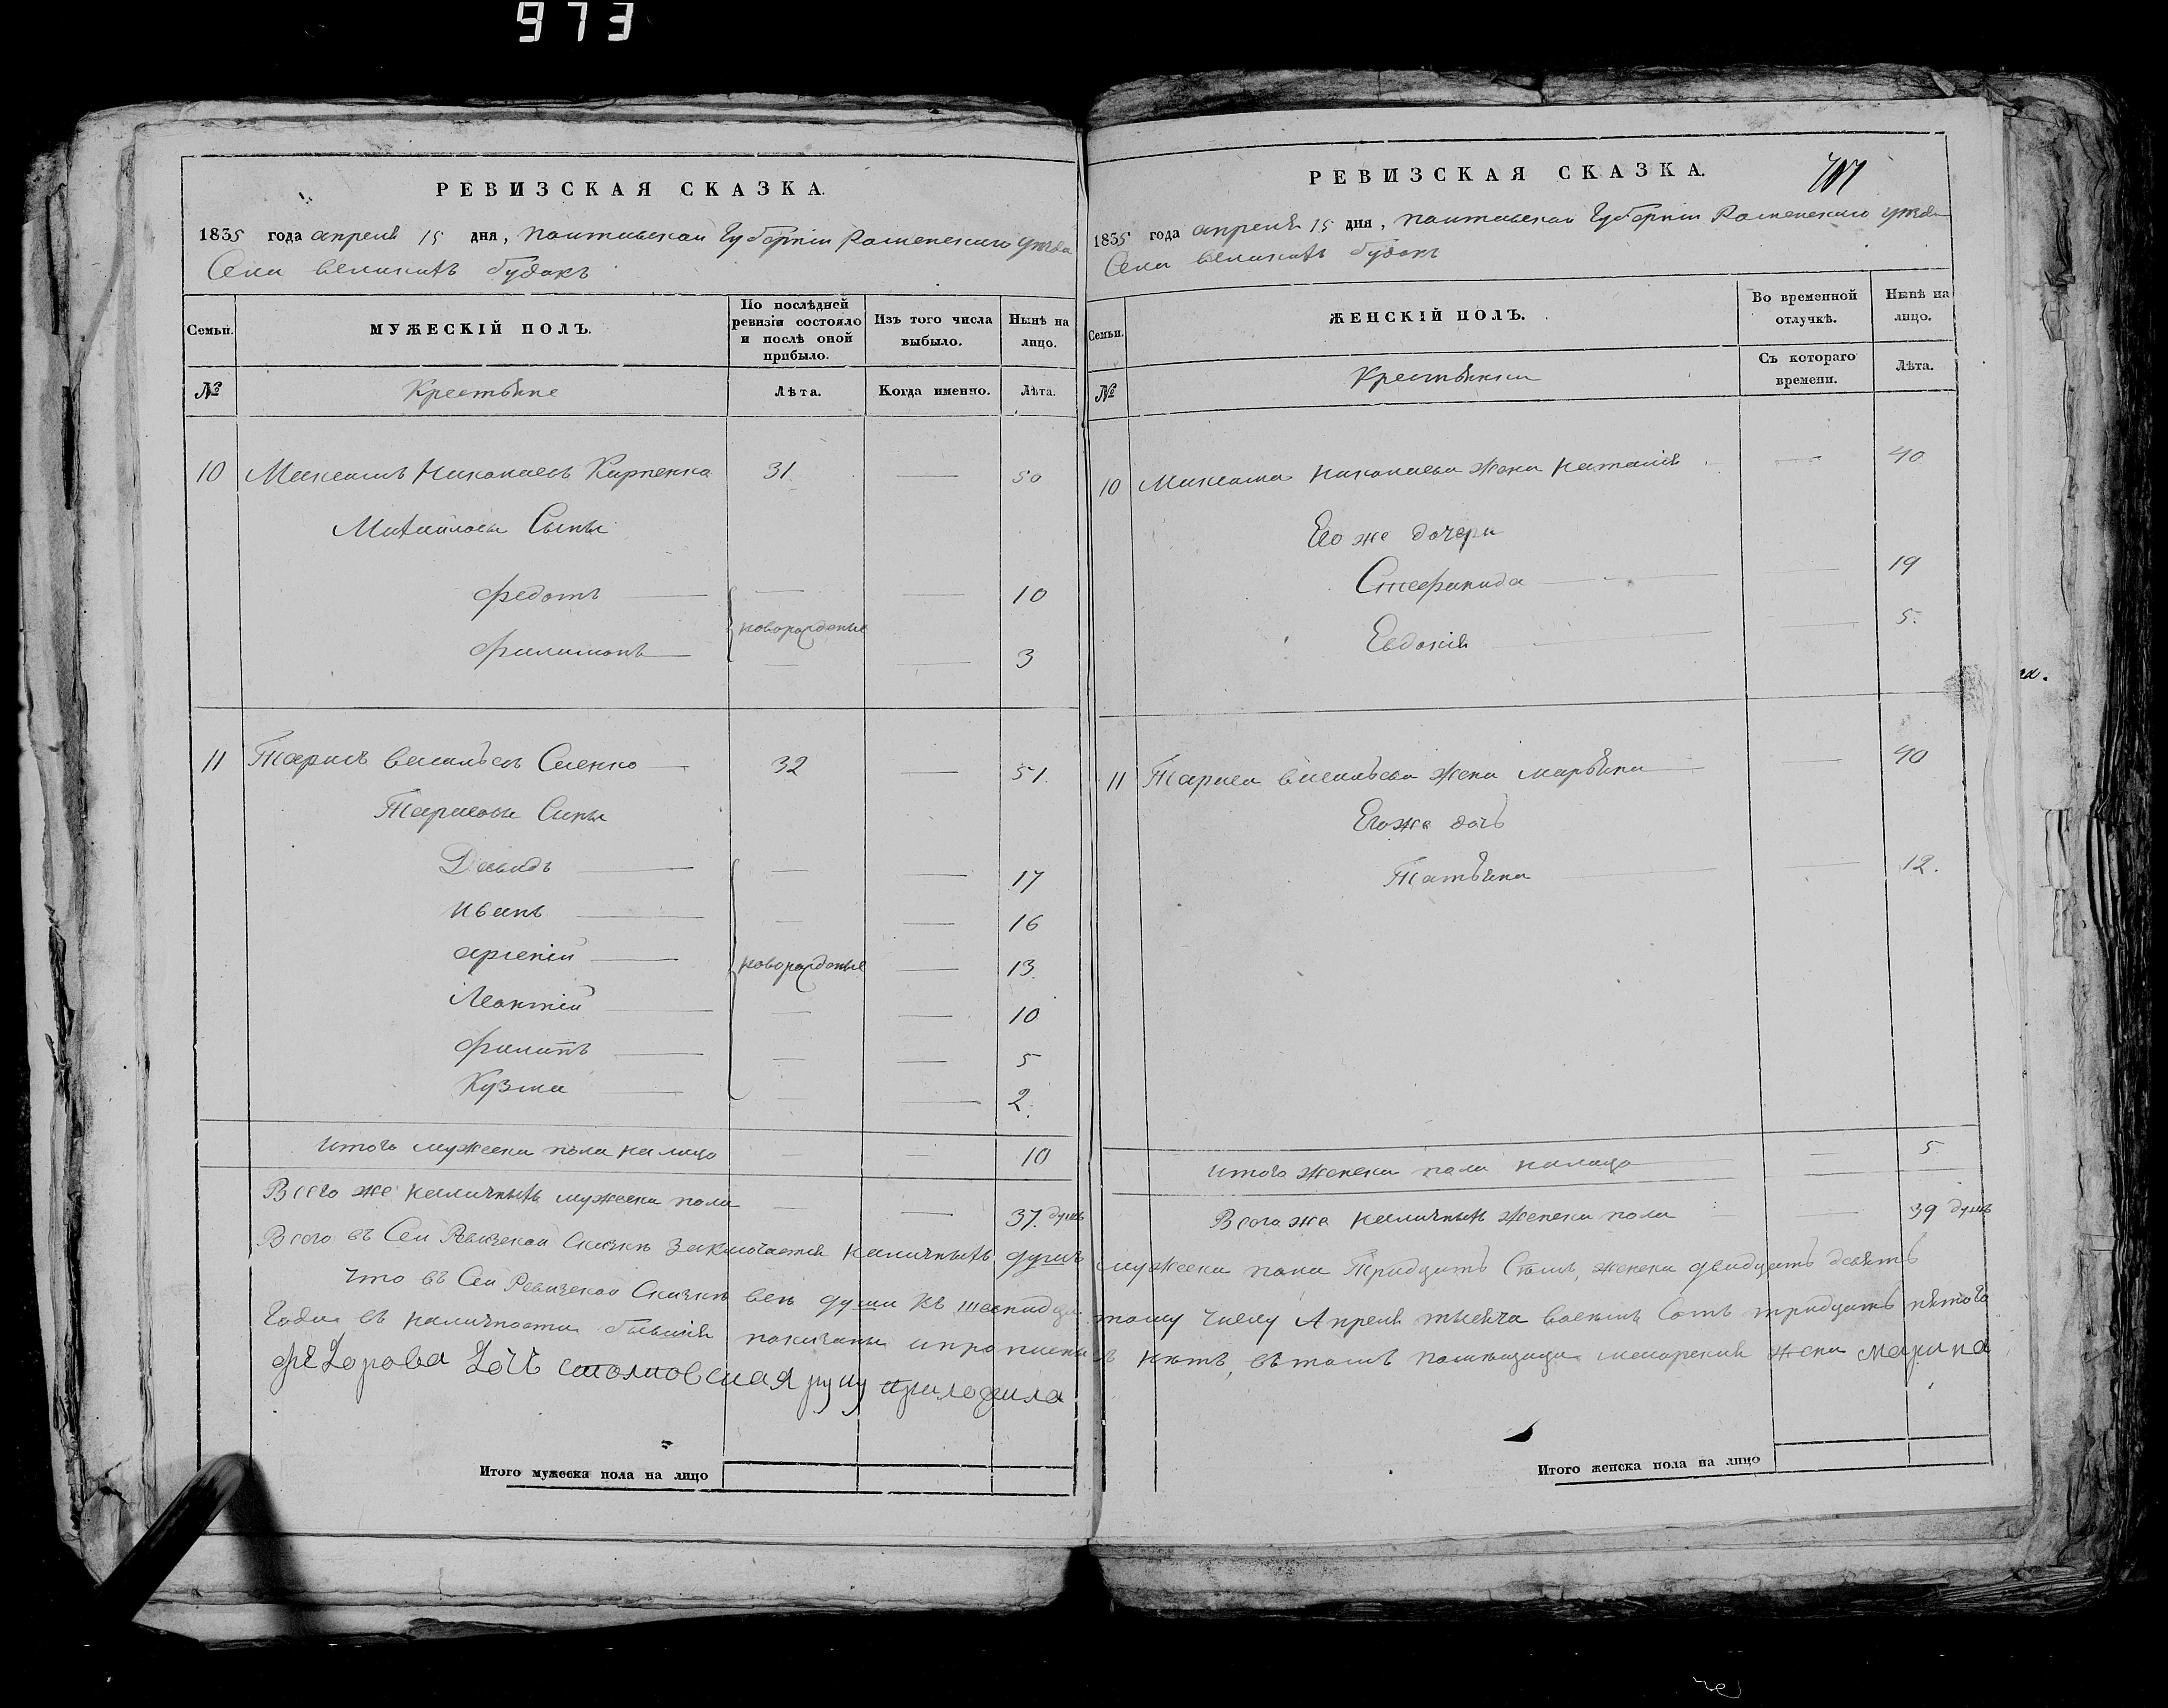 973
РЕВИЗСКАЯ СКАЗКА.
1835 года апреля 15 дня, Полтавской Губернии Роменского уезда
Села великихъ будокъ
Семьи.
МУЖЕСКІЙ ПОЛЪ.
По послѣдней ревизіи состояло и послѣ оной прибыло.
Изъ того числа выбыло.
Нынѣ на лицо.
№
Крестьяне
Лѣта.
Когда именно.
Лѣта.
10 Максимъ Николаевъ Карпенко 31. — 50
Сыны
Федотъ — — — 10
новорожденые
Филимонъ — — — 3
11 Тарасъ Васильевъ — 32 — 51.
Тарасовы Сыны
Давидъ — — — 17
Иванъ — — — 16
Арсеній — новорожденые — 13.
Леонтій — — — 10
Филипъ — — — 5
Кузма — — — 2.
Итого мужеска пола на лицо — — 10
Всего же наличныхъ мужеска пола — — 37. душъ
Всего въ Сей Ревизской Сказке заключается наличныхъ душъ
Что въ Сей Ревизской Сказке все души къ
Года въ наличности бывшія показаны и
Федорова дочь руку приложила
Итого мужеска пола на лицо
РЕВИЗСКАЯ СКАЗКА.
1835 года апреля 15 дня, Полтавской Губернии Роменского уезда
Села великихъ будокъ
Семьи.
ЖЕНСКІЙ ПОЛЪ.
Во временной отлучкѣ.
Нынѣ на лицо.
№
Крестьянки
Съ котораго времени.
Лѣта.
10 Максима Николаева жена Наталія — 40
Его же дочери
Стефанида — — 19
Евдокія — — 5.
11 Тараса Васильева жена марьяна — — 40
Его же дочь
Татьяна — — 12.
Итого женска пола на лицо — — 5
Всего же наличныхъ женска пола — 39 душъ
мужеска пола Тридцать Семь, женска двадцать девять
числу Апреля тысяча восемь Сотъ тридцать пятого
нетъ, въ томъ помещица жена марина
Итого женска пола на лицо